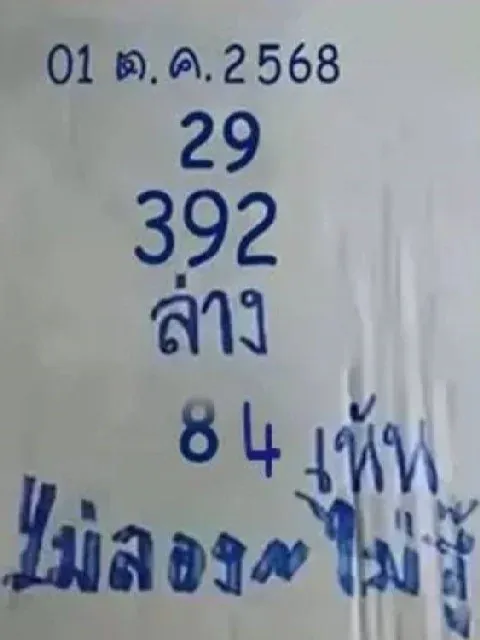 01 ต.ค.2568
29
392
ล่าง
84
เห้น
ไม่ลอง~ไม่รู้